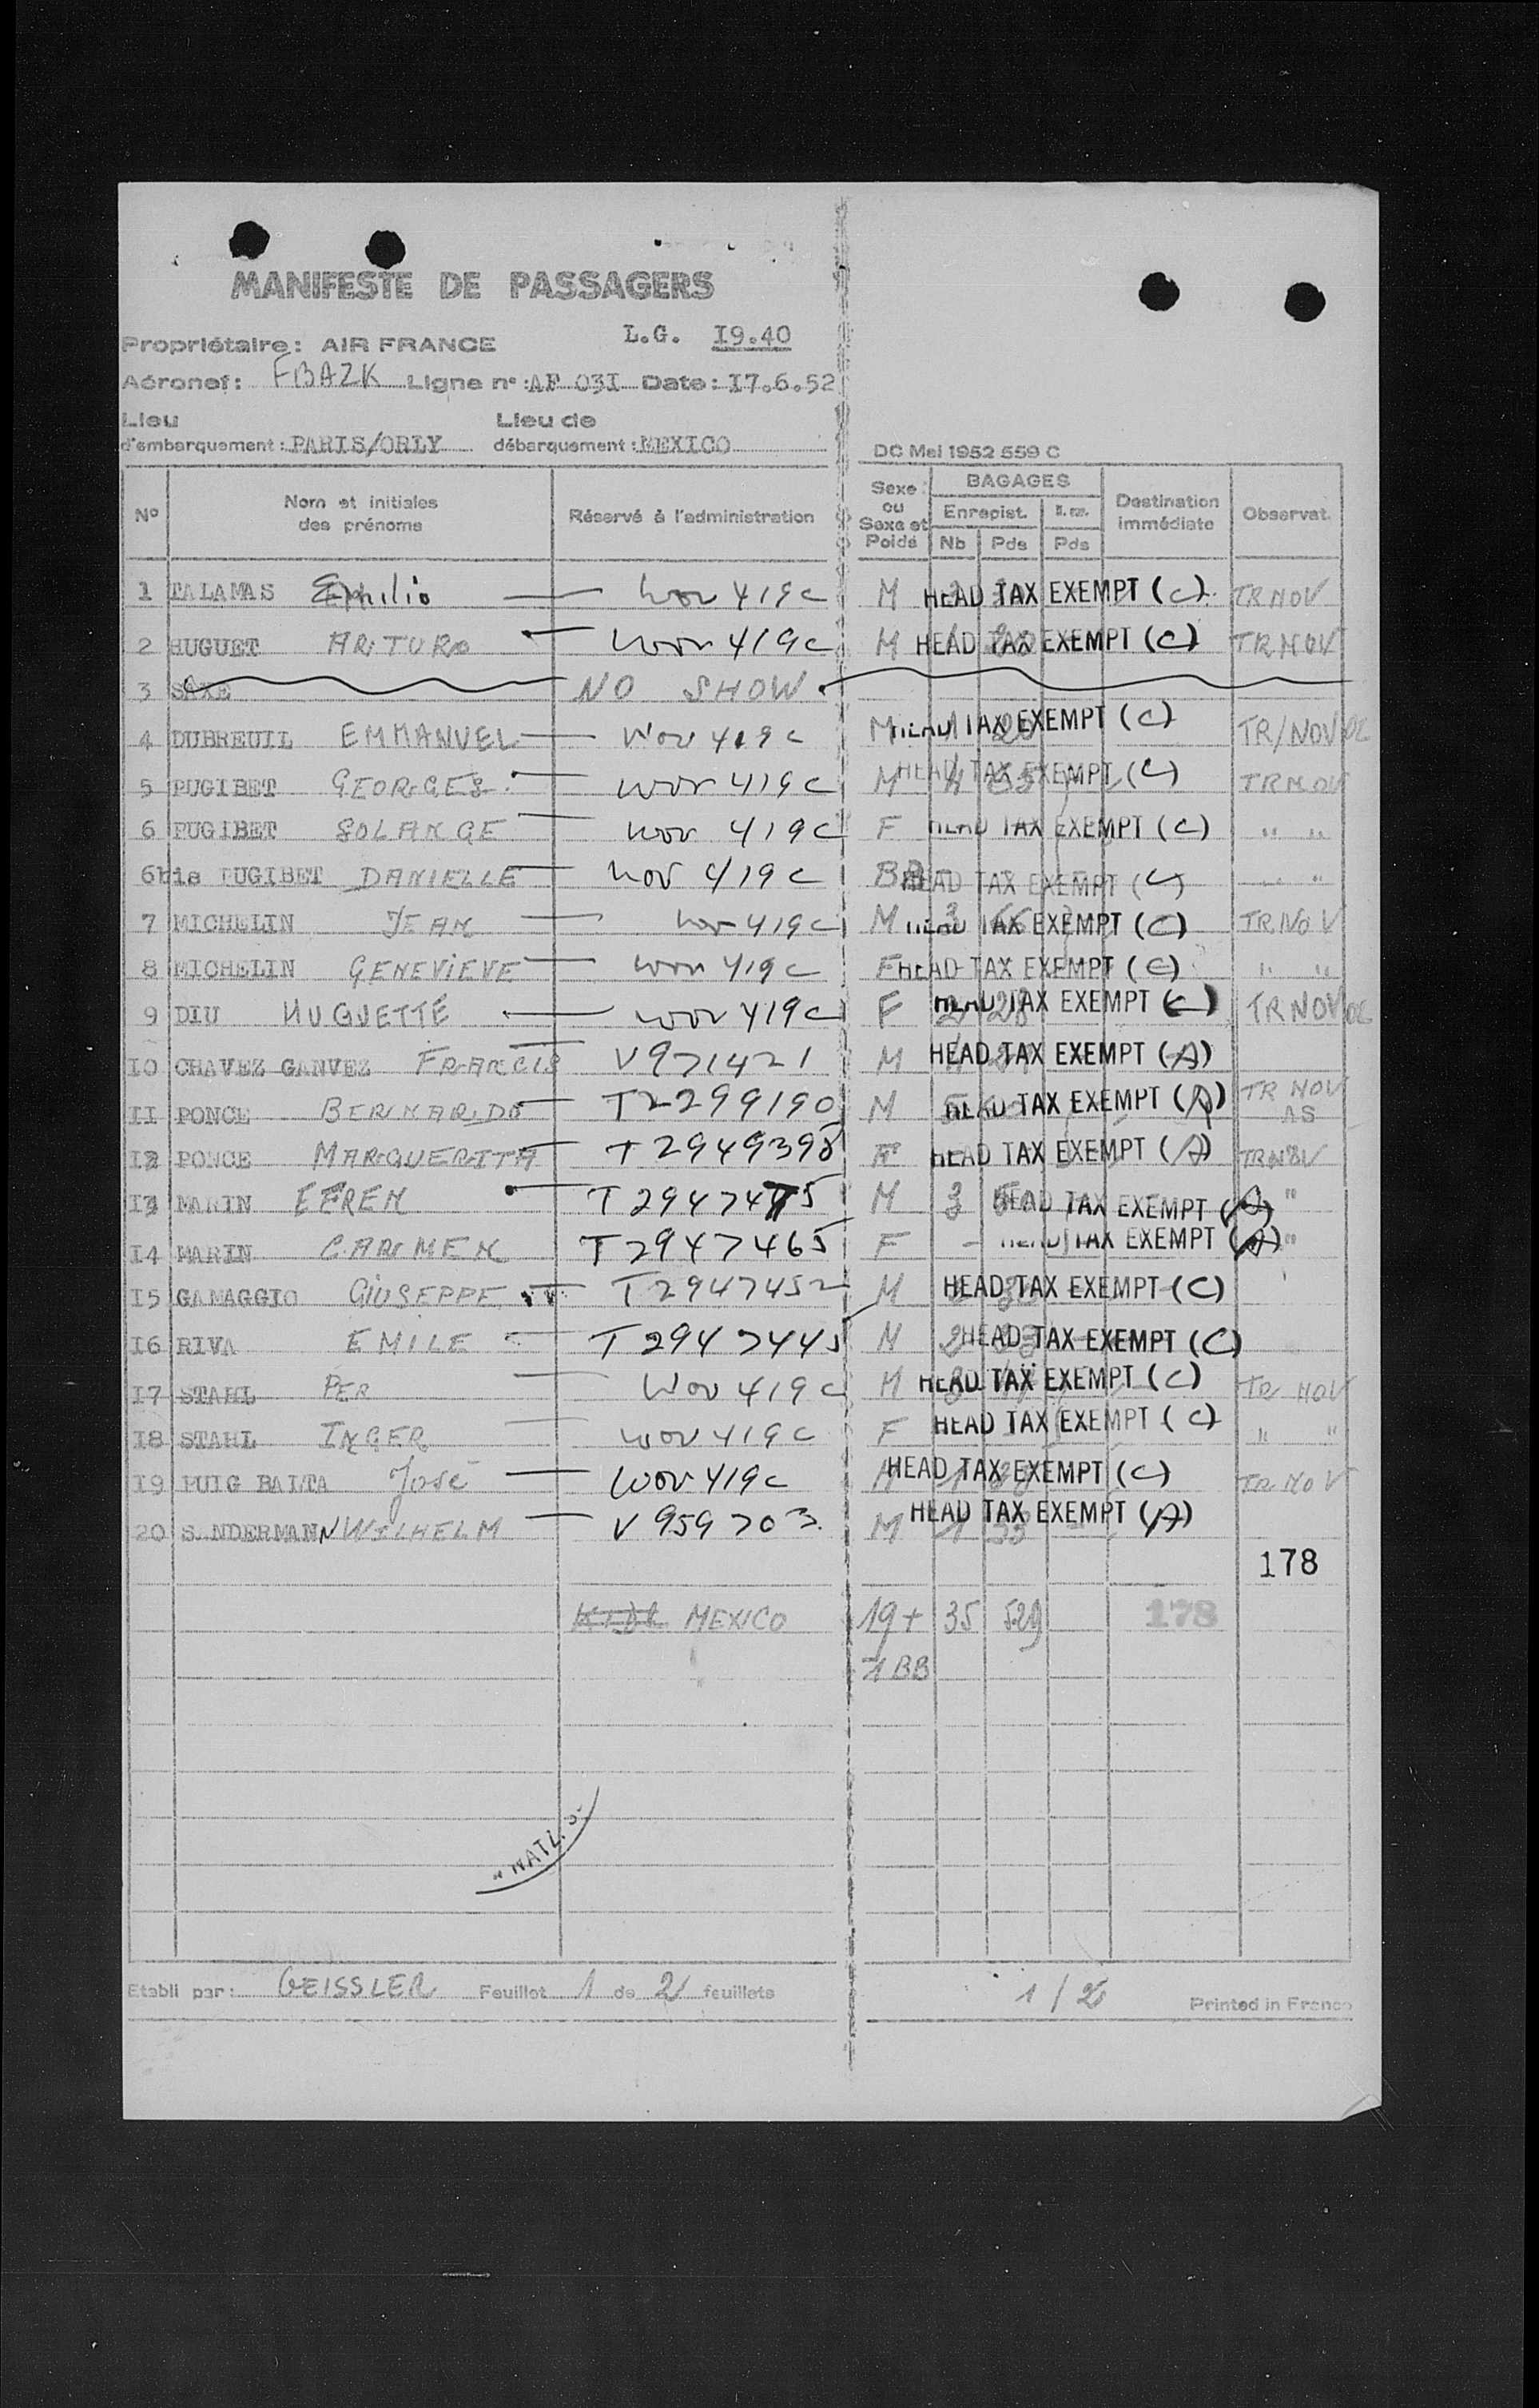 MANIFESTE DE PASSAGERS
L.G. I9.40
Propriétaire: AIR FRANCE
Aéronef: FBAZK Ligne n°: AF 03I Date: I7.6.52
Lieu d'embarquement: PARIS/ORLY Lieu de débarquement: MEXICO
DC Mai 1952 559 C
N° Nom et initiales des prénoms Réservé à l'administration Sexe ou Sexe et Poids BAGAGES Enregist. Nb Pds Pds Destination immédiate Observat.
1 TALAMAS Emilio wov 419c M HEAD TAX EXEMPT (C) TRNOV
2 HUGUET ARTURO wov 419c M HEAD TAX EXEMPT (C) TRNOV
3 SAXE NO SHOW
4 DUBREUIL EMMANUEL wov 419c M HEAD TAX EXEMPT (C) TR/NOV
5 PUGIBET GEORGES wov 419c M HEAD TAX EXEMPT (C) TRNOV
6 PUGIBET SOLANGE wov 419c F HEAD TAX EXEMPT (C) " "
6bis PUGIBET DANIELLE wov 419c BB HEAD TAX EXEMPT (C) " "
7 MICHELIN JEAN wov 419c M 3 HEAD TAX EXEMPT (C) TRNOV
8 MICHELIN GENEVIEVE wov 419c F HEAD TAX EXEMPT (C) " "
9 DIU HUGUETTE wov 419c F 2 28 HEAD TAX EXEMPT (C) TRNOV
I0 CHAVEZ GANVEZ FRANCIS V971421 M HEAD TAX EXEMPT (A)
II PONCE BERNARDO T2299190 M HEAD TAX EXEMPT (A) TR NOV AS
I2 PONCE MARGUERITA T2949398 F HEAD TAX EXEMPT (A) TRNOV
I3 MARIN EFREN T2947475 M 3 HEAD TAX EXEMPT (A) "
I4 MARIN CARMEN T2947465 F - HEAD TAX EXEMPT (A) "
I5 GAMAGGIO GIUSEPPE T2947452 M HEAD TAX EXEMPT (C)
I6 RIVA EMILE T2947445 M 2 HEAD TAX EXEMPT (C)
I7 STAHL PER wov 419c M HEAD TAX EXEMPT (C) TR NOV
I8 STAHL INGER wov 419c F HEAD TAX EXEMPT (C) " "
I9 PUIG BALTA José wov 419c M 1 HEAD TAX EXEMPT (C) TR NOV
20 S.NDERMANN WILHELM V959703 M 1 33 HEAD TAX EXEMPT (A)
178
MEXICO 19+ 35 529 178
1 BB
Etabli par: GEISSLER Feuillet 1 de 2 feuillets 1/2 Printed in France